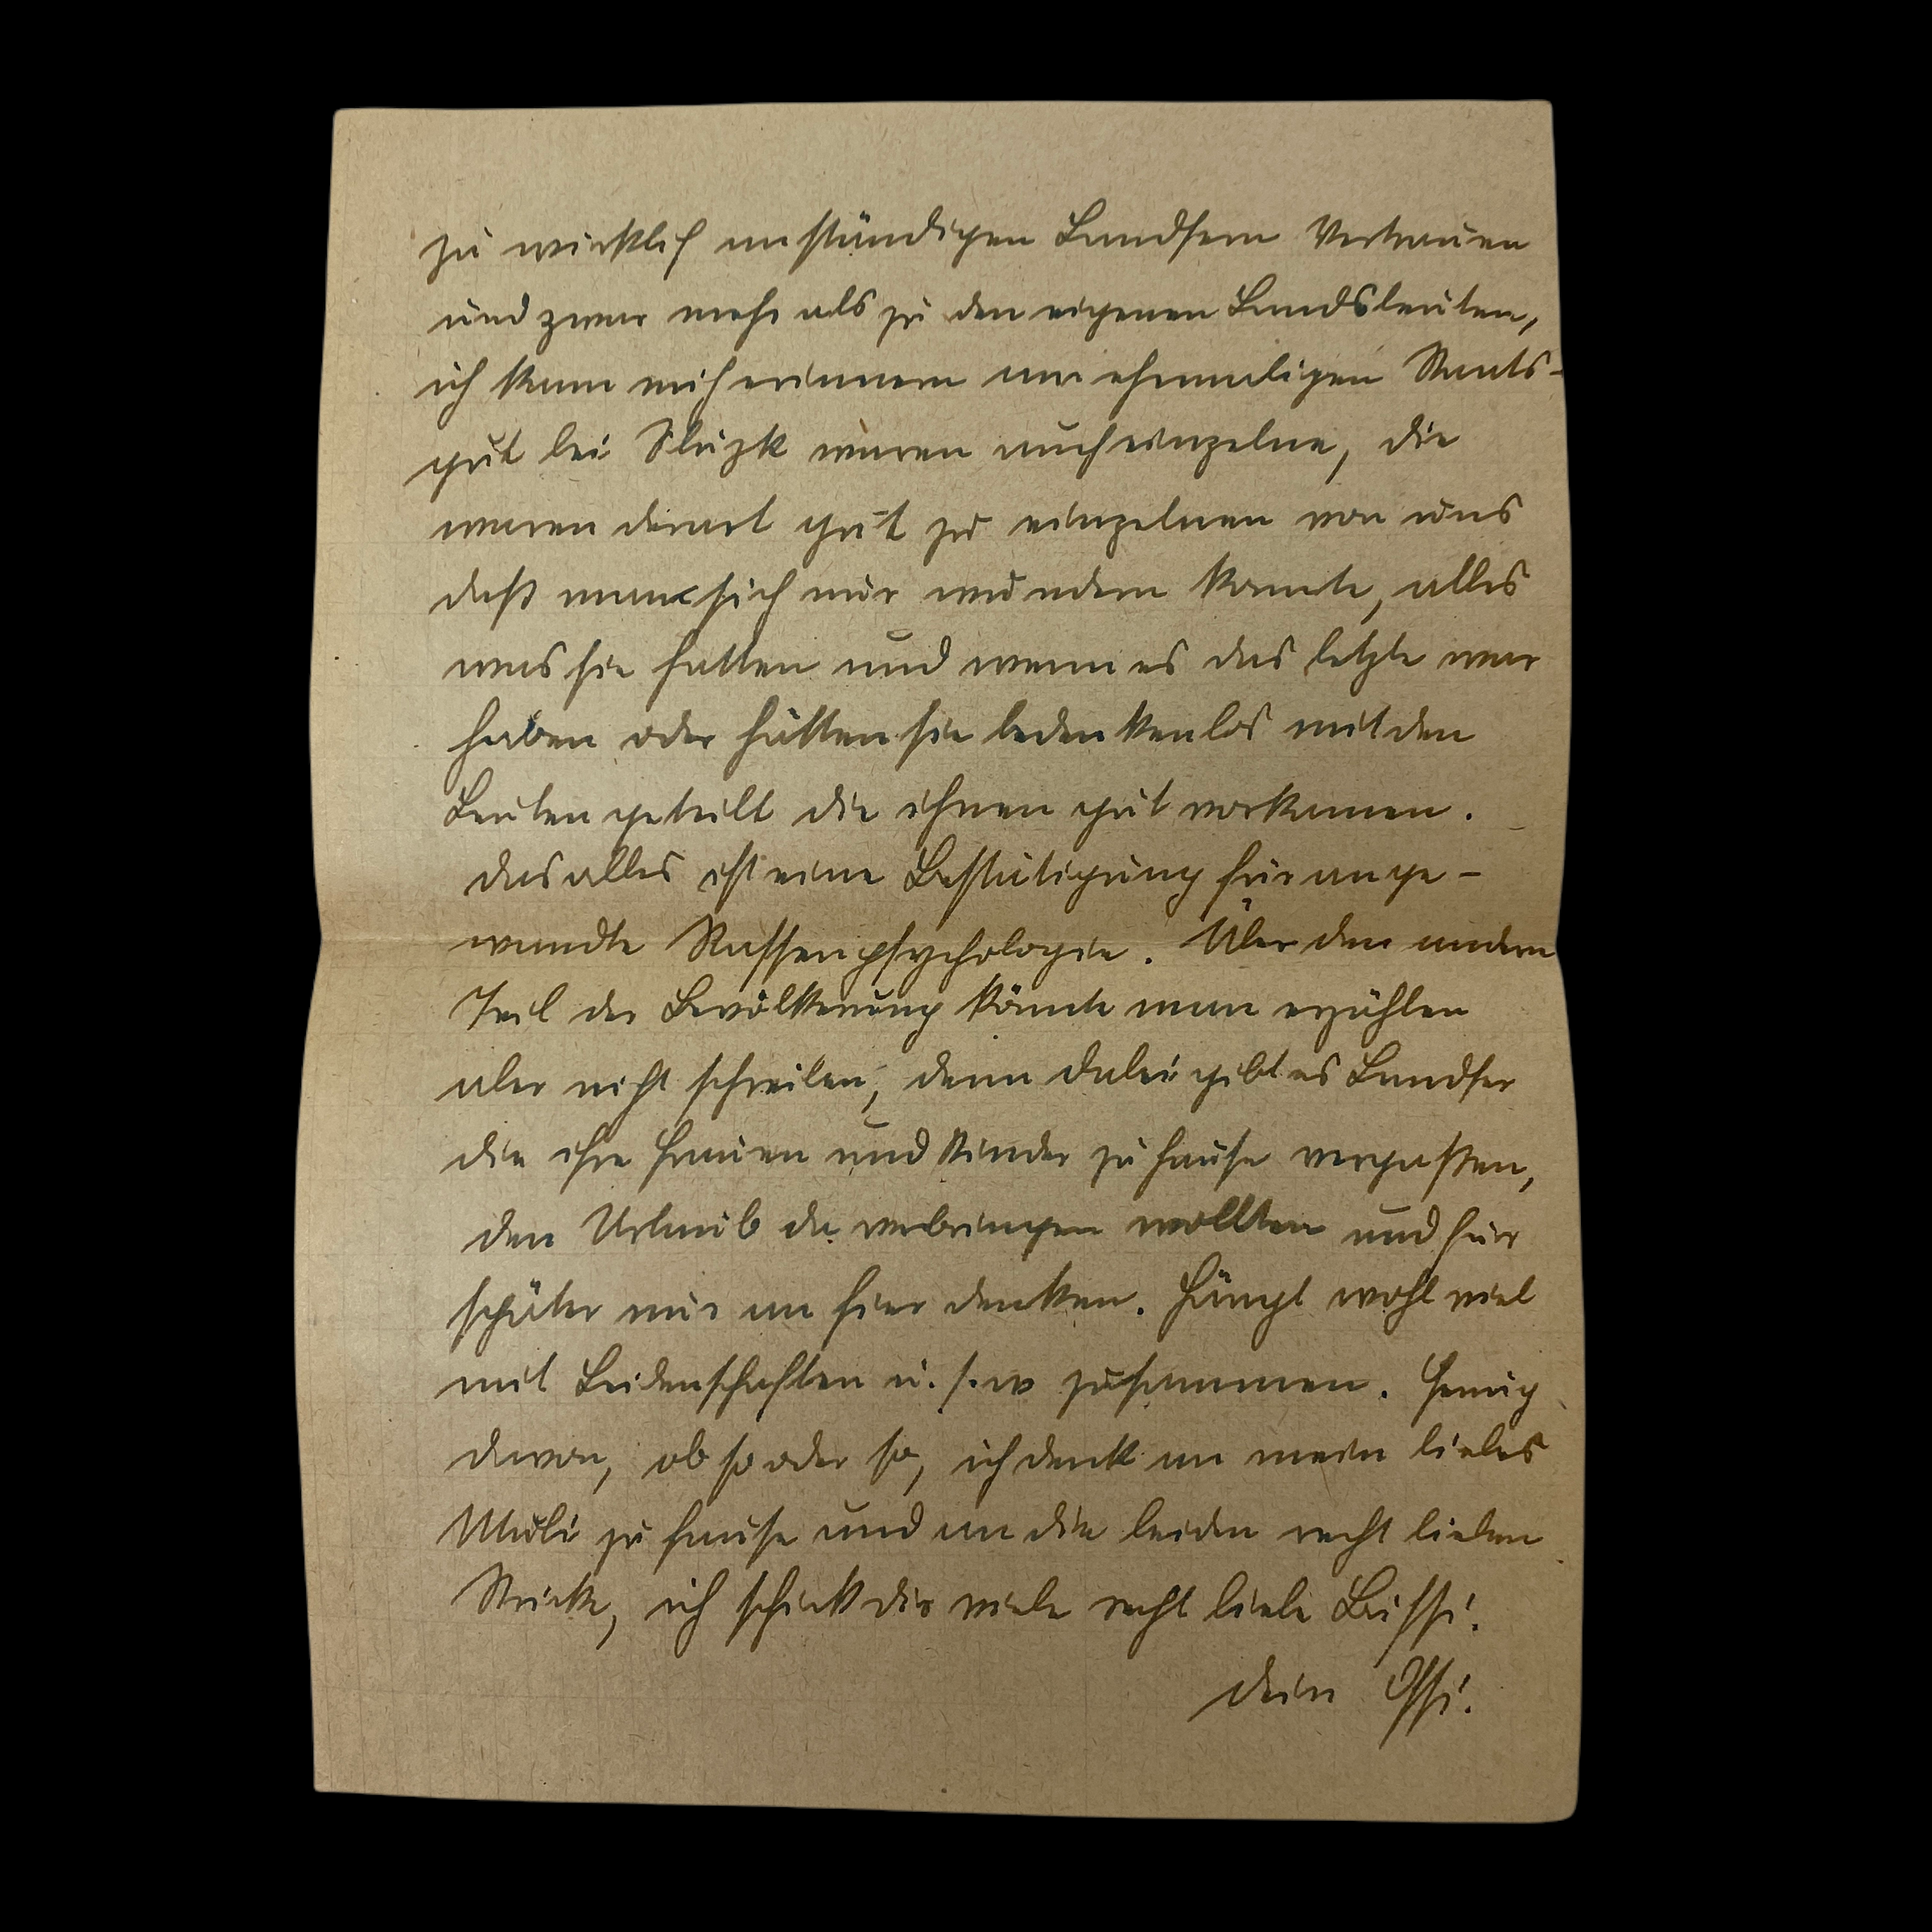 zu wirklich anständigen Landsern Vertrauen
und zwar mehr als zu den eigenen Landsleuten,
ich kann mich erinnern am ehemaligen Staats-
gut bei Sluzk waren auch einzelne, die
waren derart gut zu einzelnen von uns
daß man sich nur wundern konnte, alles
was sie hatten und wenn es das letzte war
haben oder hätten sie bedenkenlos mit den
Leuten geteilt die ihnen gut vorkamen.
das alles ist eine Bestätigung für ange-
wandte Rassenpsychologie. Über den andern
Teil der Bevölkerung könnte man erzählen
aber nicht schreiben, denn dabei gibt es Landser
die ihre Frauen und Kinder zu hause vergaßen,
den Urlaub da verbringen wollten und für
später nur an hier denken. Hängt wohl viel
mit Leidenschaften u. s. w zusammen. Genug
davon, ob so oder so, ich denk an mein liebes
zu hause und an die beiden recht lieben
Stücke, ich schick dir viele recht liebe Bussi.
dein Ossi.